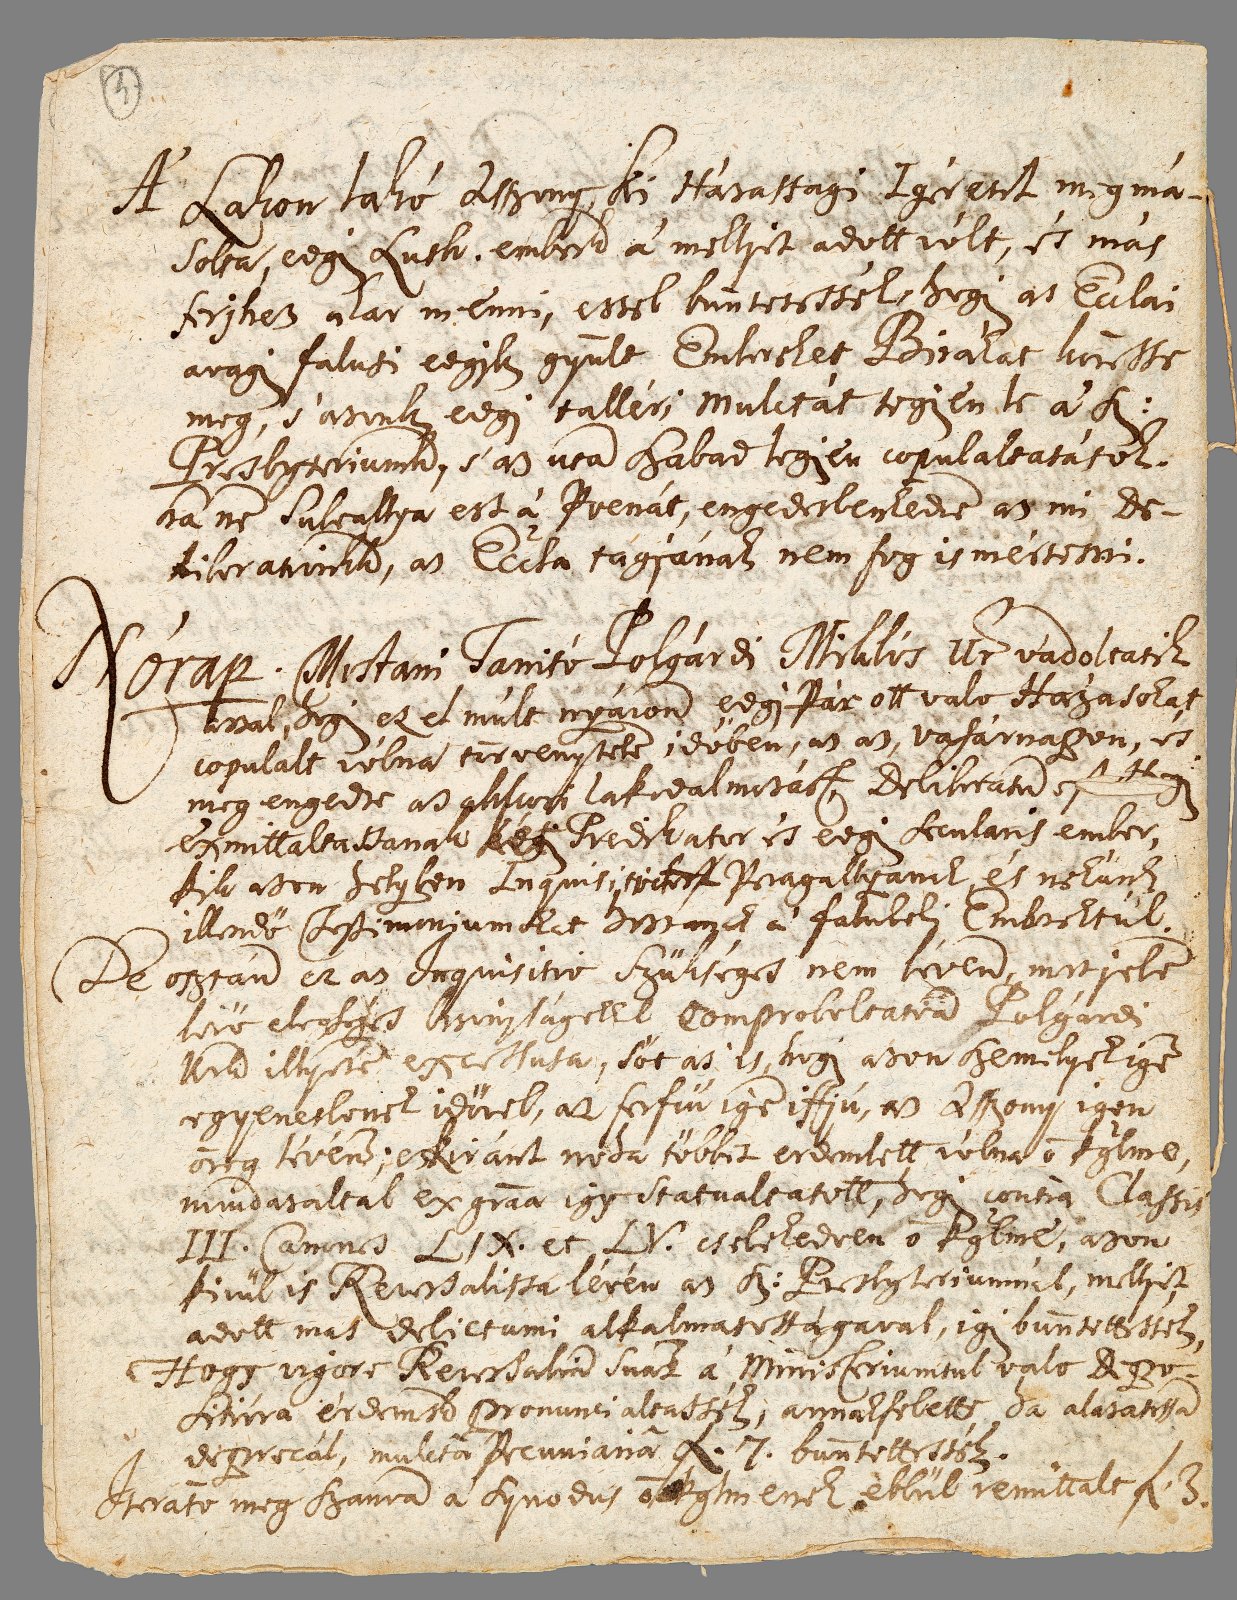 4
A Lakon lakó Asszony, ki Házassagi Igéretit megmá-
solta, edgy Luth. embernek á mellyet adott vólt, és más
ferjhez akar menni, ezzel büntetessék, hogy az Ecclai
aragy falusi edgyik gyűlt Embereket Birákat kövesse
meg, s' azonk edgy tallérj mulctát tegien le á Sz:
Presbyteriumnak, s' az utan szabad legien copulaltatástol.
ha ne subeallya ezt á Poenát, engedetlenkedvé az mi De-
liberationknak, az Eccla tagjának nem fog ismértetni.
Nórap. Mostani Tanitó Polgárdi Miklós Ur vádoltatik
azzal, hogy ez el múlt nyáron edgy Pár ott valo Házasokat
copulalt vólna törvenytelen időben, az az, vasárnapon, és
meg engedte az akkori lakodalmozást, Deliberatum est Hogy
Exmittaltassanak edgy Predikator és edgy secularis ember,
kik azon helyben Inquisitiot Peragallyanak, és nekünk
illendő Testimoniumokat hozzanak á falubelj Emberektül.
De osztán ez az Inquisitio szükséges nem lévén, mert jelen
levő elegséges bizonyságokkal Comprobaltatván Polgárdi
Urnak illyetén excessusa, sőt az is, hogy azon személyek igen
egyenetlenek idővel, az ferfiu igen iffjú, az Asszony igen
öreg lévén; eziránt noha többet erdemlett vólna ő kglme,
mindazaltal ex gratia igy statualtatott, hogy contra Classis
III. Canones LIX. et LV. cselekedvén ő kglme, azon
kivül is Reversalissa lévén az Sz: Presbyteriumnál, mellyet
adott mas delictumi alkalmatosságaval, igy büntettessék,
Hogy vigore Reversalium suarum á Ministeriumtul valo depo-
sitióra érdemesnek pronuncialtassék, annakfelette, ha alazatossan
deprecál, mulcta Pecuniaria f. 7. büntettessék.
Iterato meg szanván á Synodus ő kglmenek ebbül remittalt f. 3.